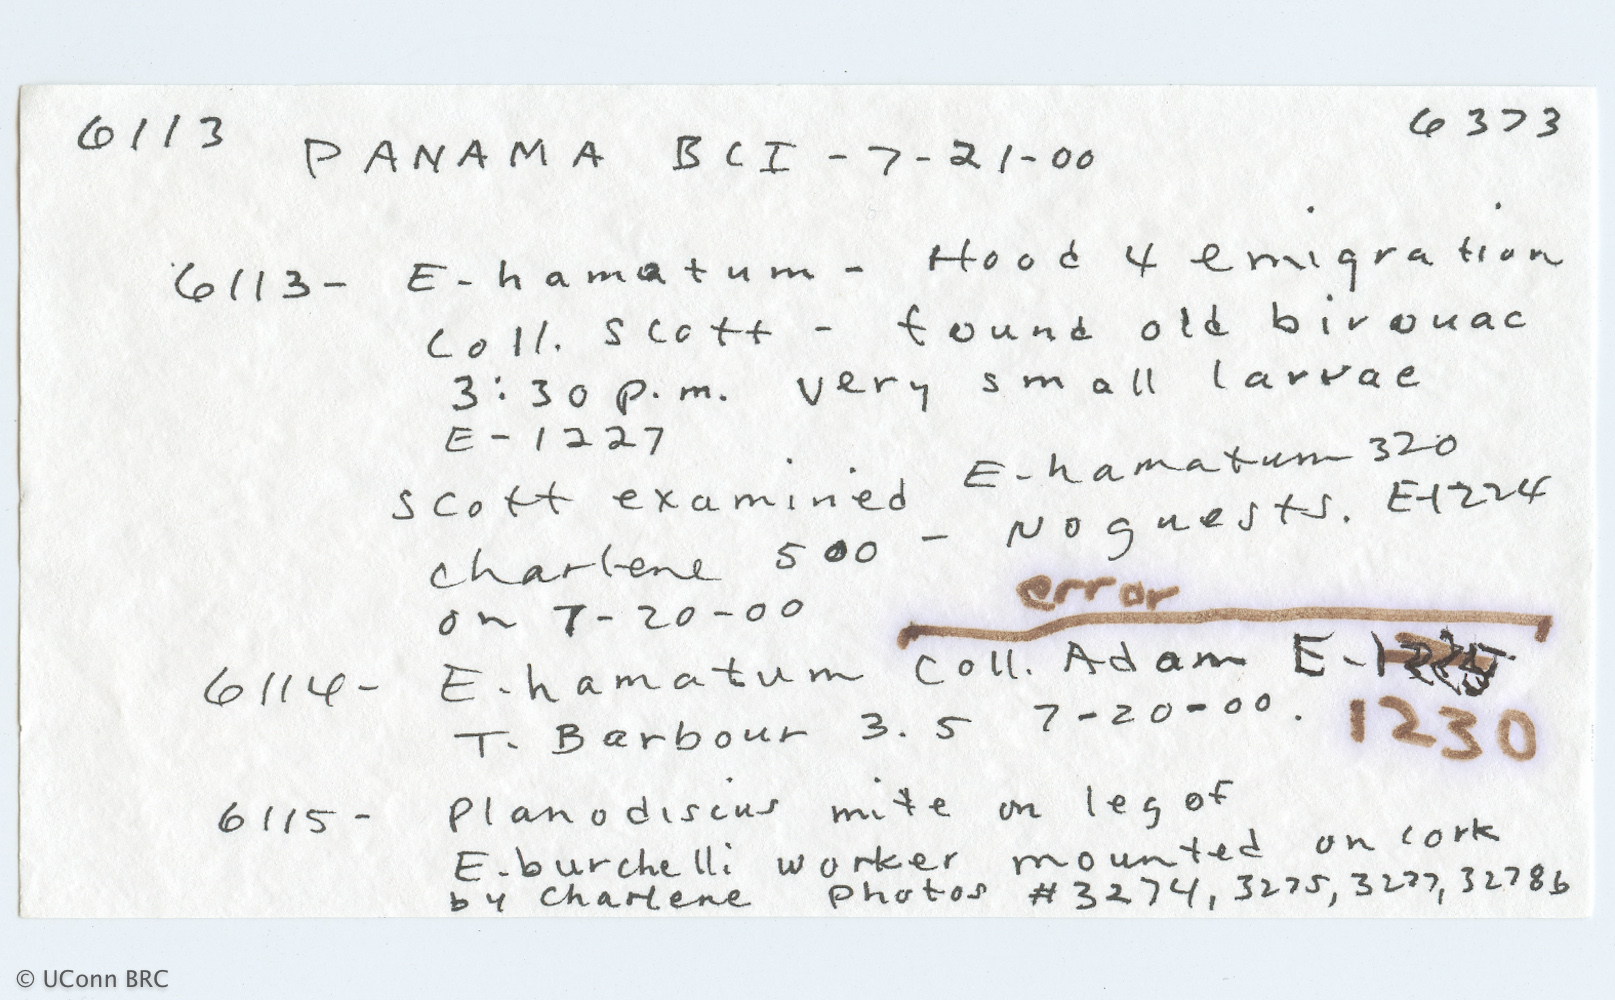 6113 6373
PANAMA BCI - 7-21-00
6113- E-hamatum - Hood 4 emigration
Coll. Scott - found old bivouac
3:30 p.m. very small larvae
E-1227
Scott examined E-hamatum 320
Charlene 500 - No guests. E-1224
on 7-20-00
error
6114- E-hamatum Coll. Adam E-
T. Barbour 3.5 7-20-00. 1230
6115- Planodiscus mite on leg of
E-burchelli worker mounted on cork
by Charlene Photos #3274, 3275, 3277, 3278b
© UConn BRC